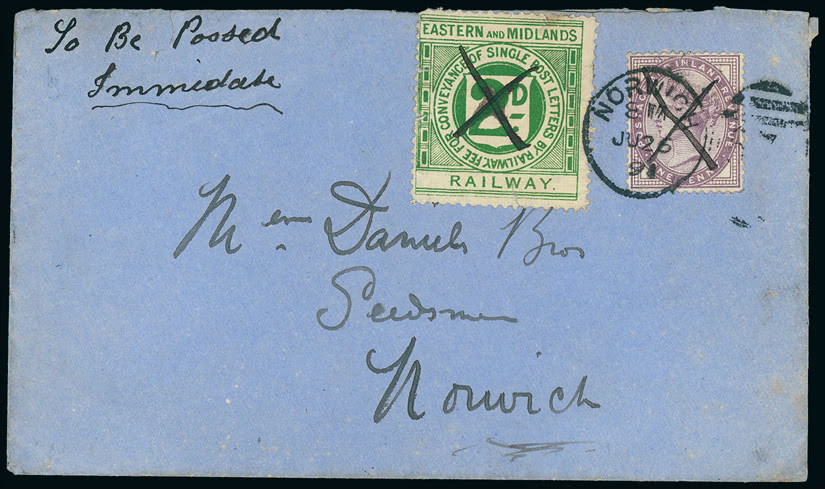 To Be Possed
Immediate
EASTERN AND MIDLANDS
FEE FOR CONVEYANCE OF SINGLE POST LETTERS BY RAILWAY
2D
RAILWAY.
INLAND REVENUE
ONE PENNY
NORWICH
JU 26
91
Messrs Daniels Bros
Seedsmen
Norwich